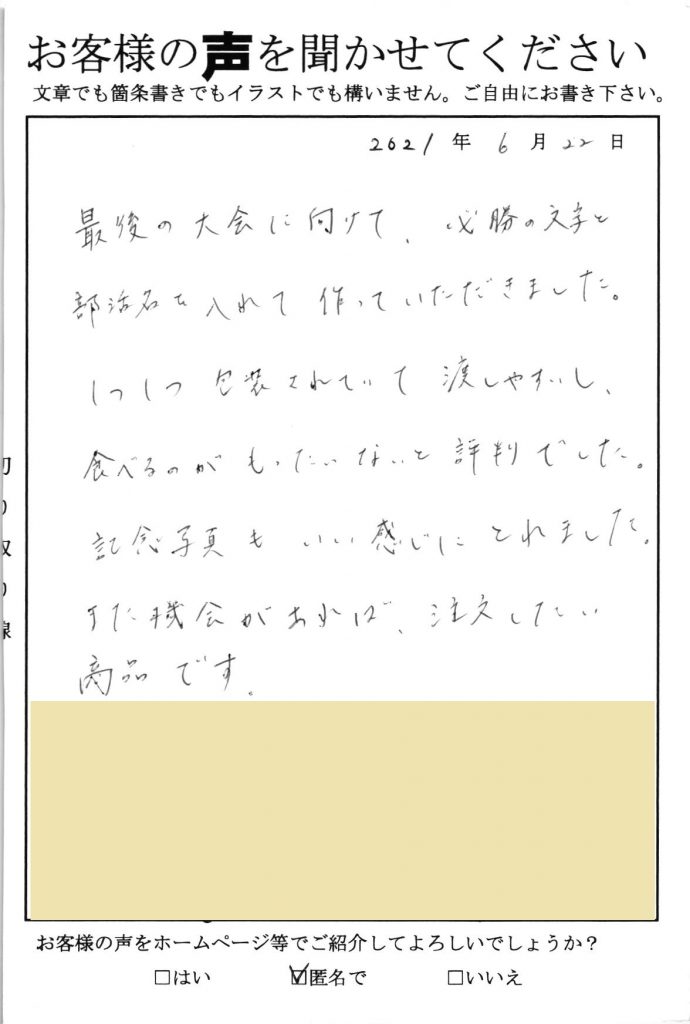 お客様の声を聞かせてください
文章でも箇条書きでもイラストでも構いません。ご自由にお書き下さい。
2021年6月22日
最後の大会に向けて、必勝の文字と
部活名を入れて作っていただきました。
1つ1つ包装されていて渡しやすいし、
食べるのがもったいないと評判でした。
記念写真もいい感じにとれました。
また機会があれば、注文したい
商品です。
切り取り線
お客様の声をホームページ等でご紹介してよろしいでしょうか？
□はい ☑匿名で □いいえ